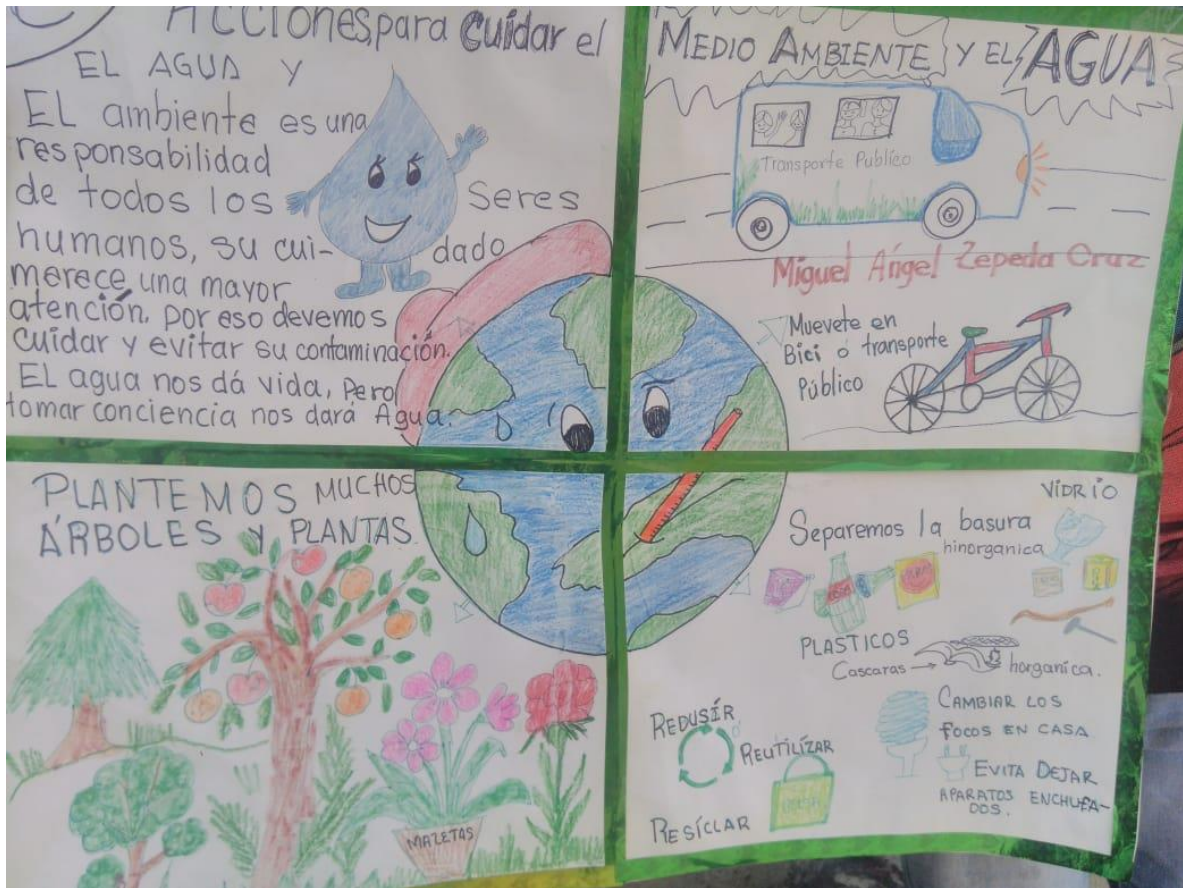 Acciones para cuidar el
EL AGUA Y
EL ambiente es una
responsabilidad
de todos los Seres
humanos, su cui- dado
merece una mayor
atención. por eso devemos
cuidar y evitar su contaminación.
EL agua nos dá vida, Pero
tomar conciencia nos dará Agua.
MEDIO AMBIENTE Y EL AGUA
Transporte Publico
Miguel Ángel Zepeda Cruz
Muevete en
Bici o transporte
Público
PLANTEMOS MUCHOS
ÁRBOLES Y PLANTAS.
MAZETAS
VIDRIO
Separemos la basura
hinorganica
PLASTICOS
Cascaras
horganica.
REDUSÍR
REUTILIZAR
RESÍCLAR
CAMBIAR LOS
FOCOS EN CASA
EVITA DEJAR
APARATOS ENCHUFA-
DOS.